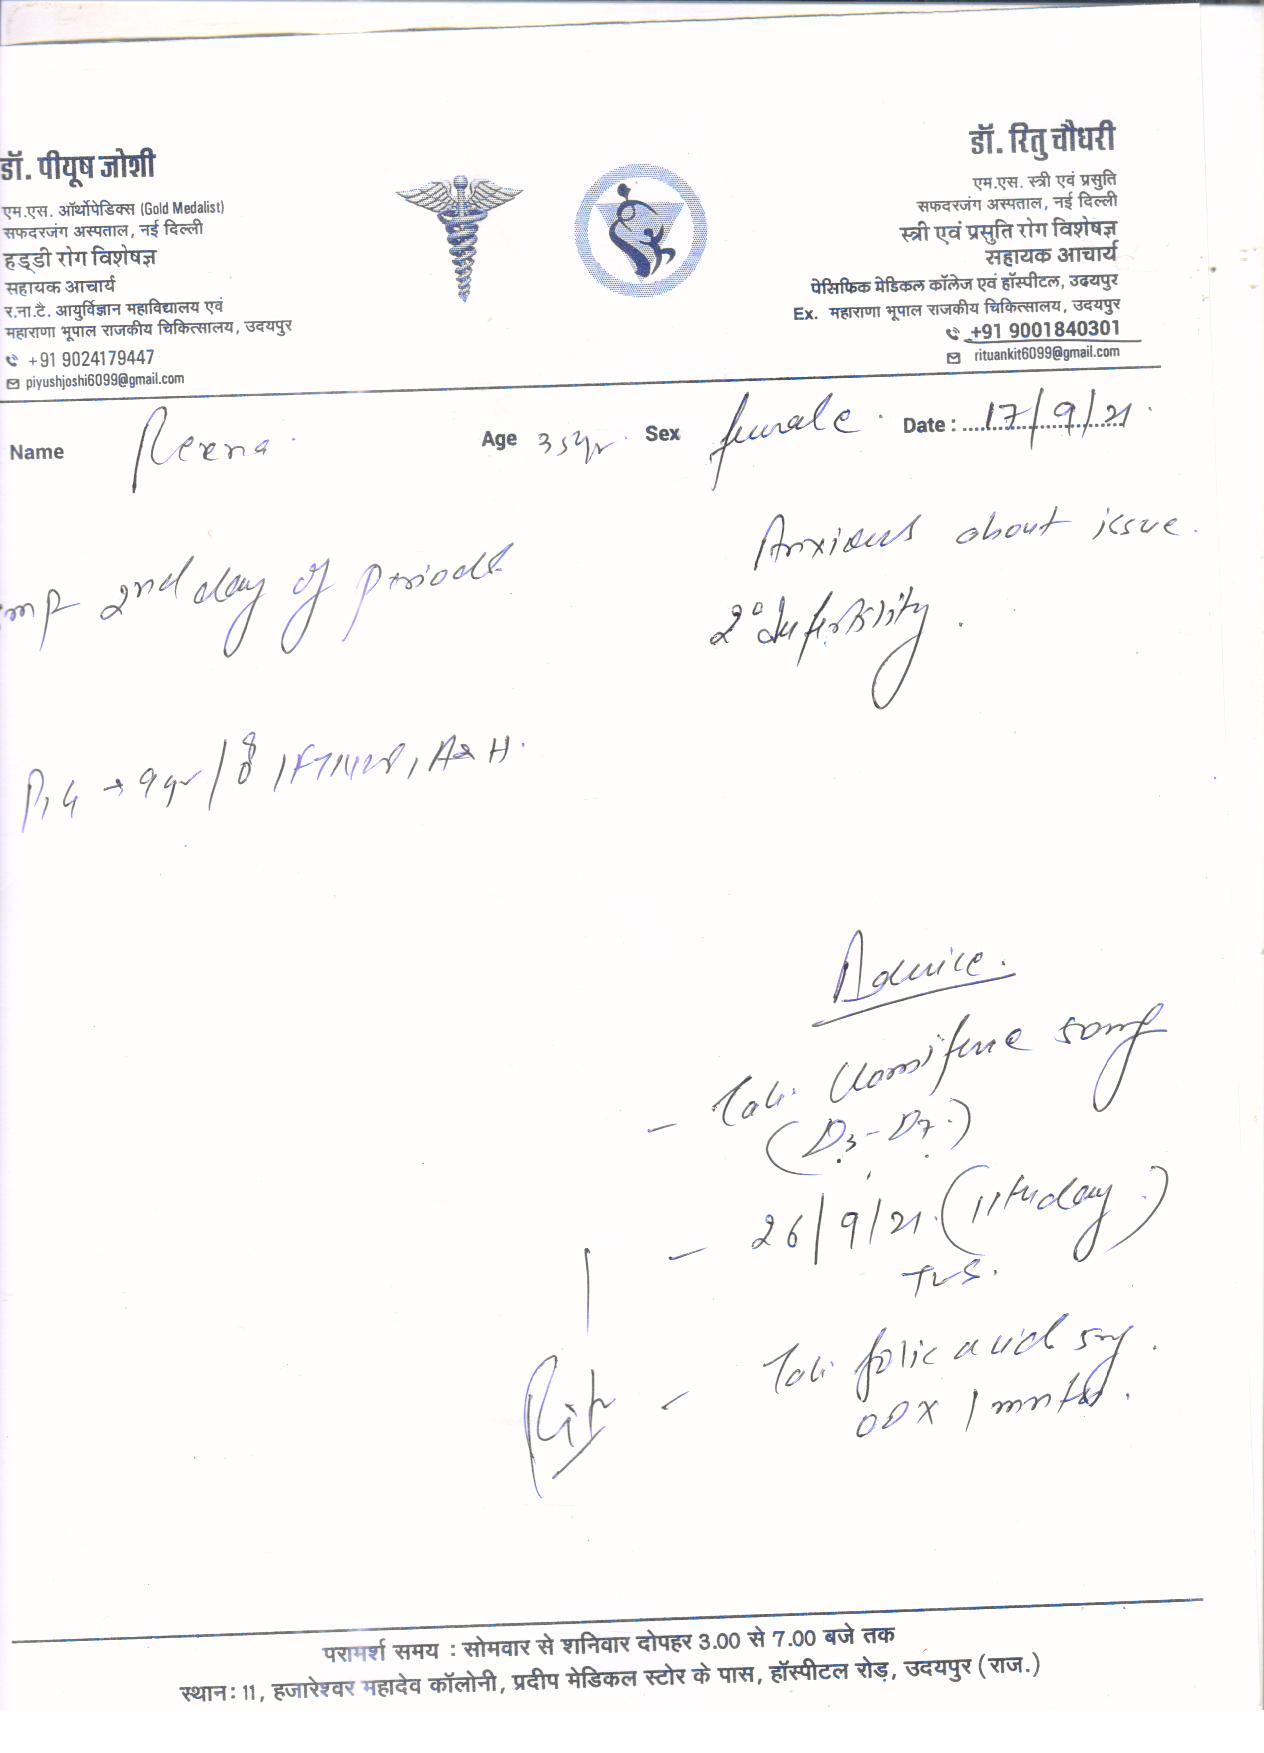 डॉ. पीयूष जोशी
एम.एस. ऑर्थोपेडिक्स (Gold Medalist)
सफदरजंग अस्पताल, नई दिल्ली
हड्डी रोग विशेषज्ञ
सहायक आचार्य
र.ना.टै. आयुर्विज्ञान महाविद्यालय एवं
महाराणा भूपाल राजकीय चिकित्सालय, उदयपुर
+91 9024179447
piyushjoshi6099@gmail.com
डॉ. रितु चौधरी
एम.एस. स्त्री एवं प्रसुति
सफदरजंग अस्पताल, नई दिल्ली
स्त्री एवं प्रसुति रोग विशेषज्ञ
सहायक आचार्य
पेसिफिक मेडिकल कॉलेज एवं हॉस्पीटल, उदयपुर
Ex. महाराणा भूपाल राजकीय चिकित्सालय, उदयपुर
+91 9001840301
rituankit6099@gmail.com
Name Reena Age 35yr Sex female Date : 17/9/21
Anxious about issue.
2nd day of periods
2° Infertility.
Advice.
- Tab. Clomifene 50mg
(D3-D7)
- 26/9/21 (11th day)
TVS.
- Tab. folic acid 5mg
OD X 1 month.
परामर्श समय : सोमवार से शनिवार दोपहर 3.00 से 7.00 बजे तक
स्थान: 11, हजारेश्वर महादेव कॉलोनी, प्रदीप मेडिकल स्टोर के पास, हॉस्पीटल रोड़, उदयपुर (राज.)